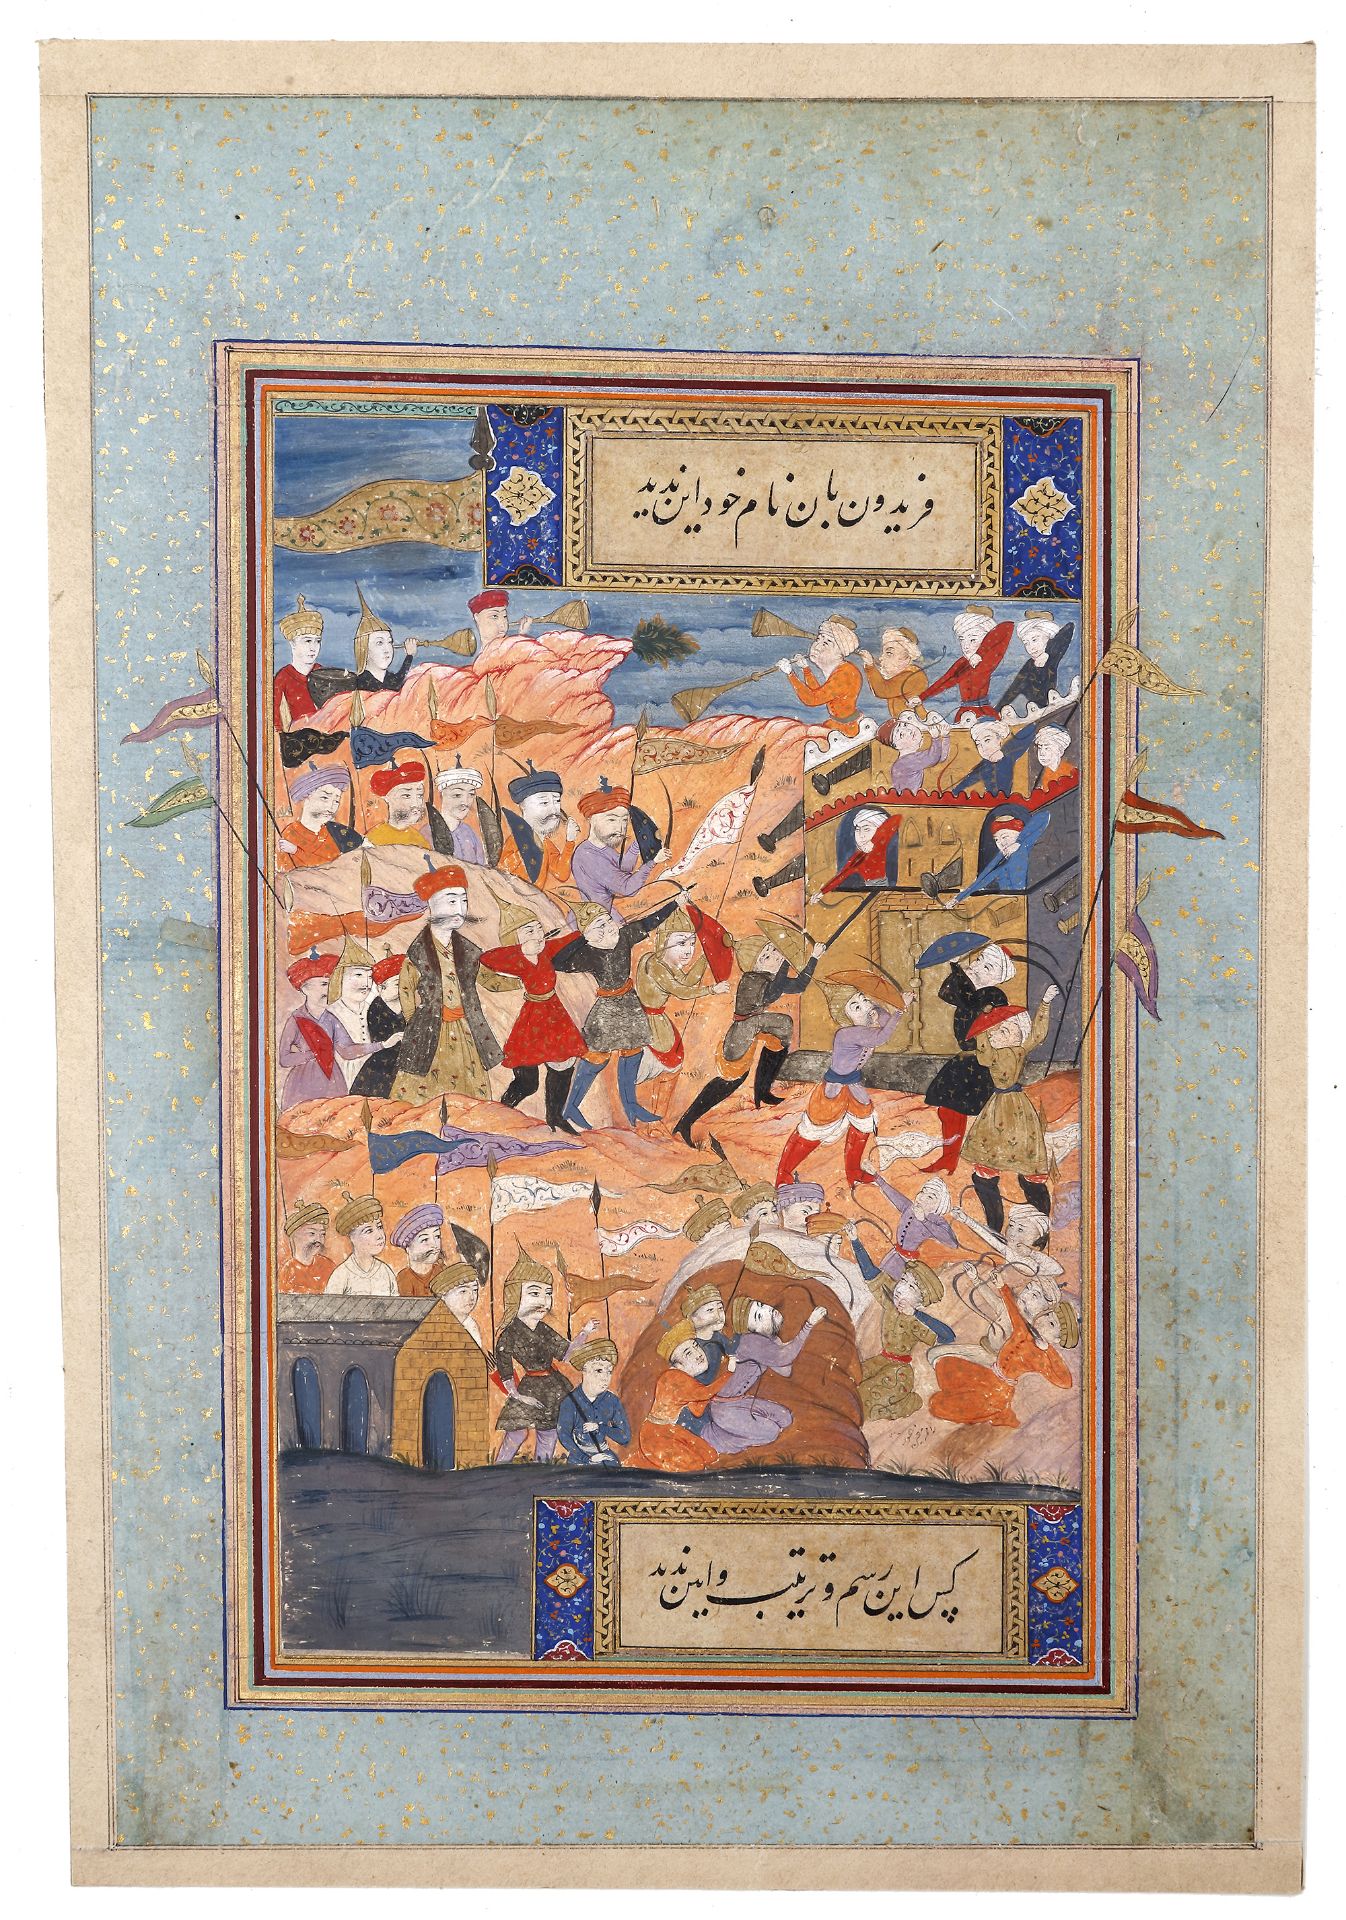 فریدون بان نام خود این ندید
کس این رسم و ترتیب و ایین ندید